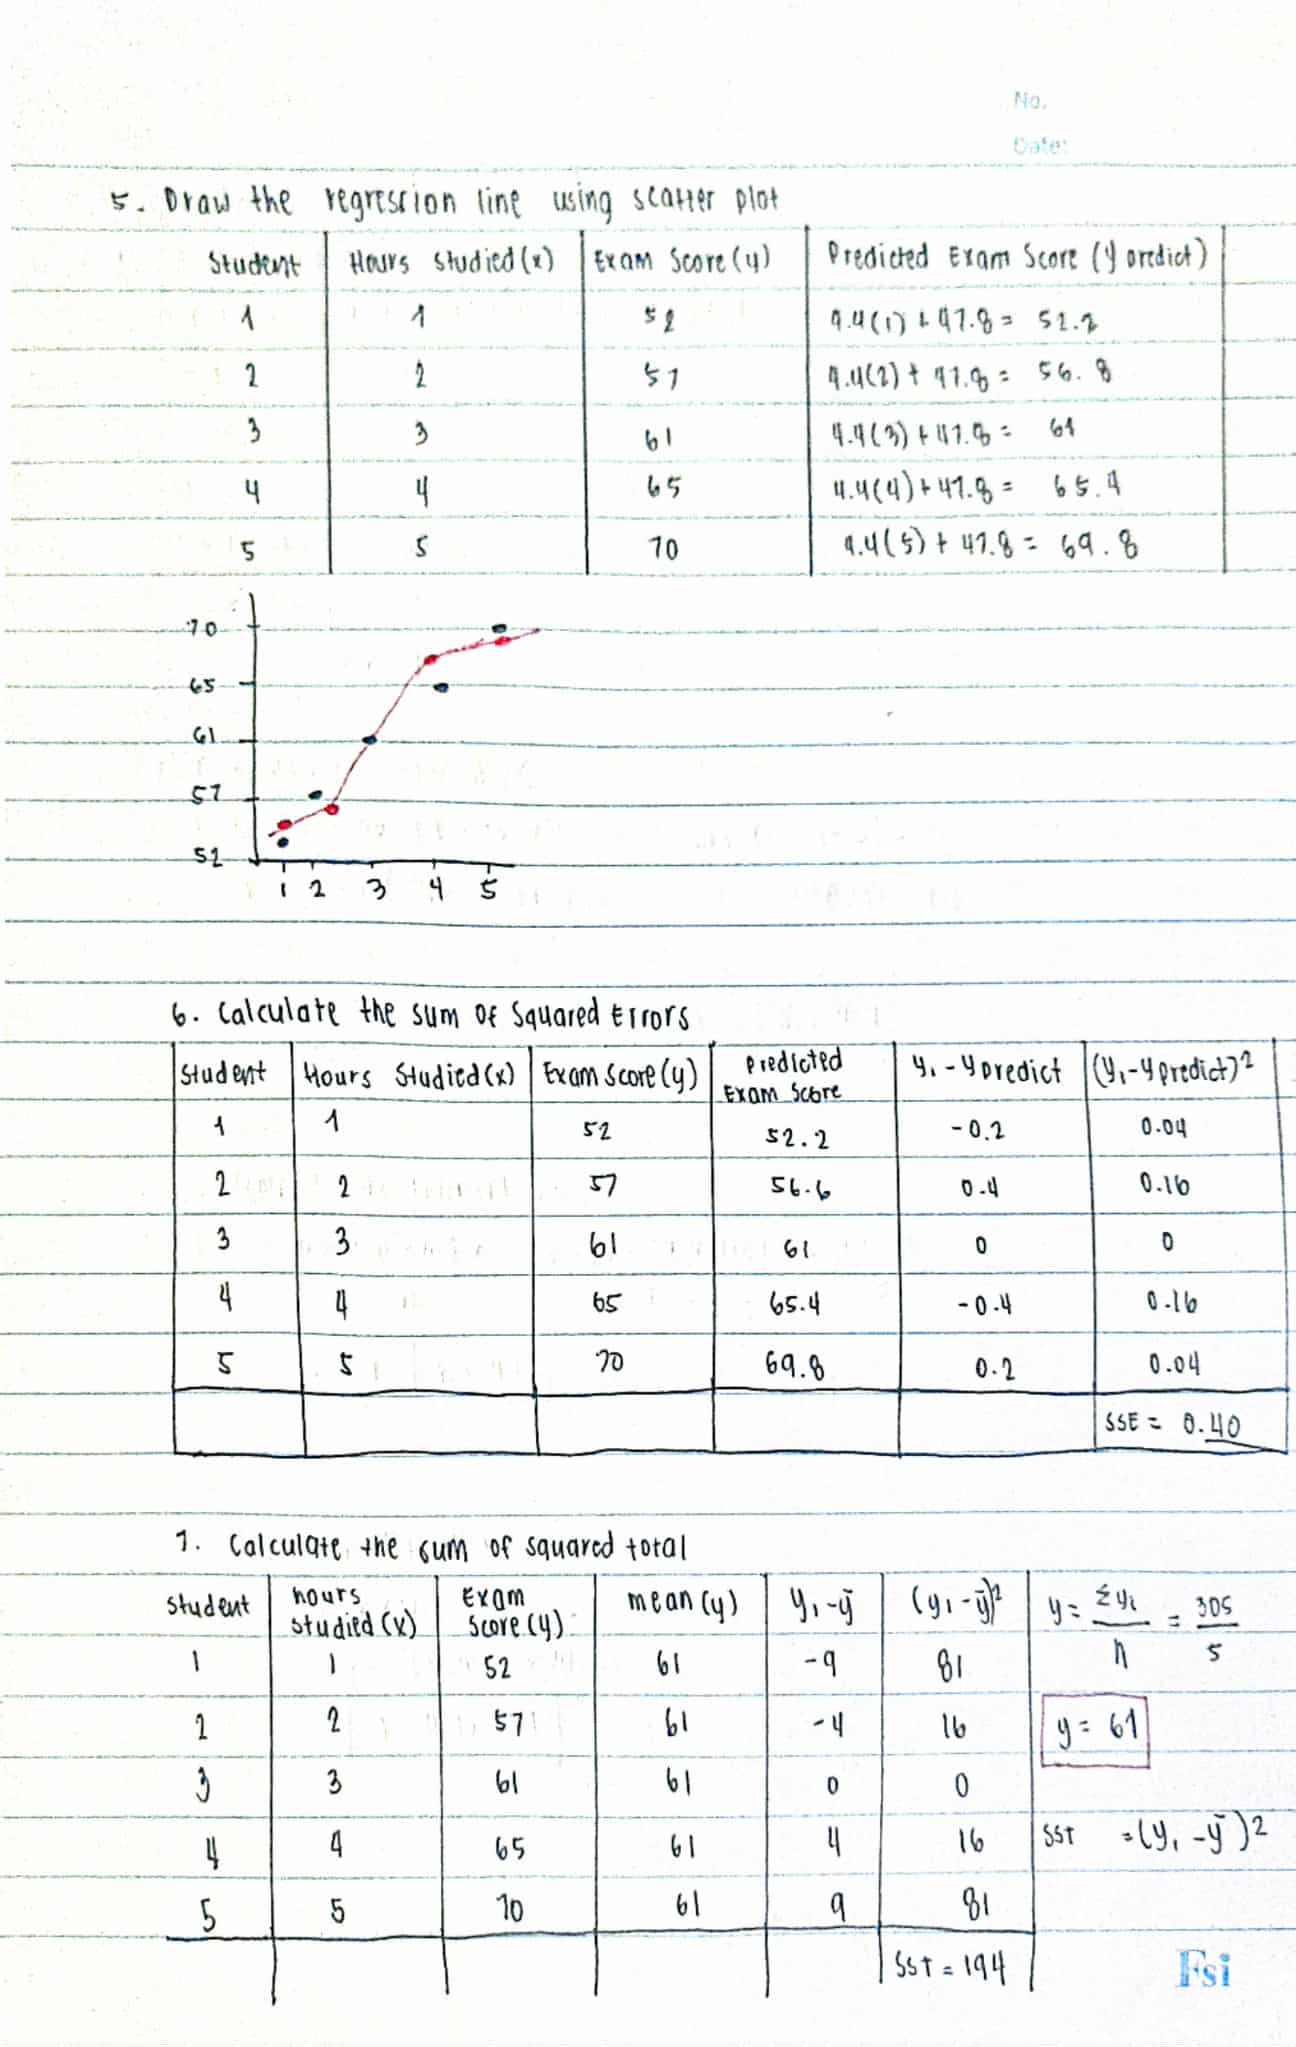 No.
Date:
5. Draw the regression line using scatter plot
Student Hours Studied (x) Exam Score (y) Predicted Exam Score (y predict)
1 1 52 4.4(1) + 47.8 = 52.2
2 2 57 4.4(2) + 47.8 = 56.8
3 3 61 4.4(3) + 47.8 = 61
4 4 65 4.4(4) + 47.8 = 65.4
5 5 70 4.4(5) + 47.8 = 69.8
70
65
61
57
52
1 2 3 4 5
6. Calculate the sum of Squared Errors
Student Hours Studied (x) Exam Score (y) Predicted Exam Score y₁ - y predict (y₁ - y predict)²
1 1 52 52.2 -0.2 0.04
2 2 57 56.6 0.4 0.16
3 3 61 61 0 0
4 4 65 65.4 -0.4 0.16
5 5 70 69.8 0.2 0.04
SSE = 0.40
7. Calculate the sum of squared total
Student hours studied (x) Exam Score (y) mean (y) y₁ - ȳ (y₁ - ȳ)² y = Σyᵢ / n = 305 / 5
1 1 52 61 -9 81
2 2 57 61 -4 16 y = 61
3 3 61 61 0 0
4 4 65 61 4 16 SST = (y₁ - ȳ)²
5 5 70 61 9 81
SST = 194
Fsi